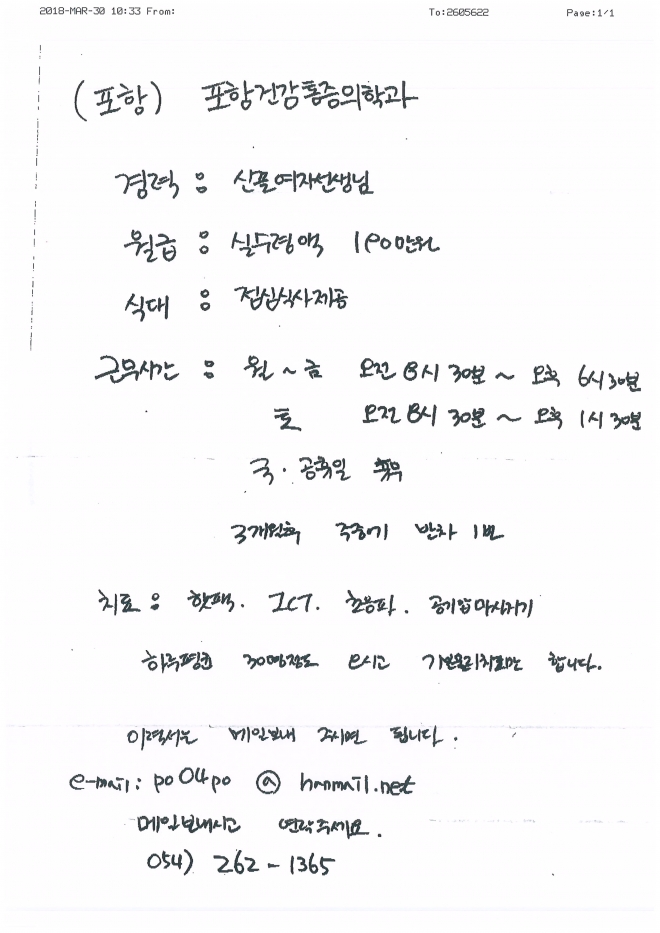 2018-MAR-30 10:33 From: To:2605622 Page:1/1
(포항) 포항건강통증의학과
경력 : 신졸여자선생님
월급 : 실수령액 190만원
식대 : 점심식사제공
근무시간 : 월 ~ 금 오전 8시 30분 ~ 오후 6시 30분
토 오전 8시 30분 ~ 오후 1시 30분
국·공휴일 휴무
3개월후 주중에 반차 1번
치료 : 핫팩. ICT. 초음파. 공기압마사지기
하루평균 30명정도 오시고 기본물리치료만 합니다.
이력서는 메일보내 주시면 됩니다.
e-mail: po04po @ hanmail.net
메일보내시고 연락주세요.
054) 262-1365